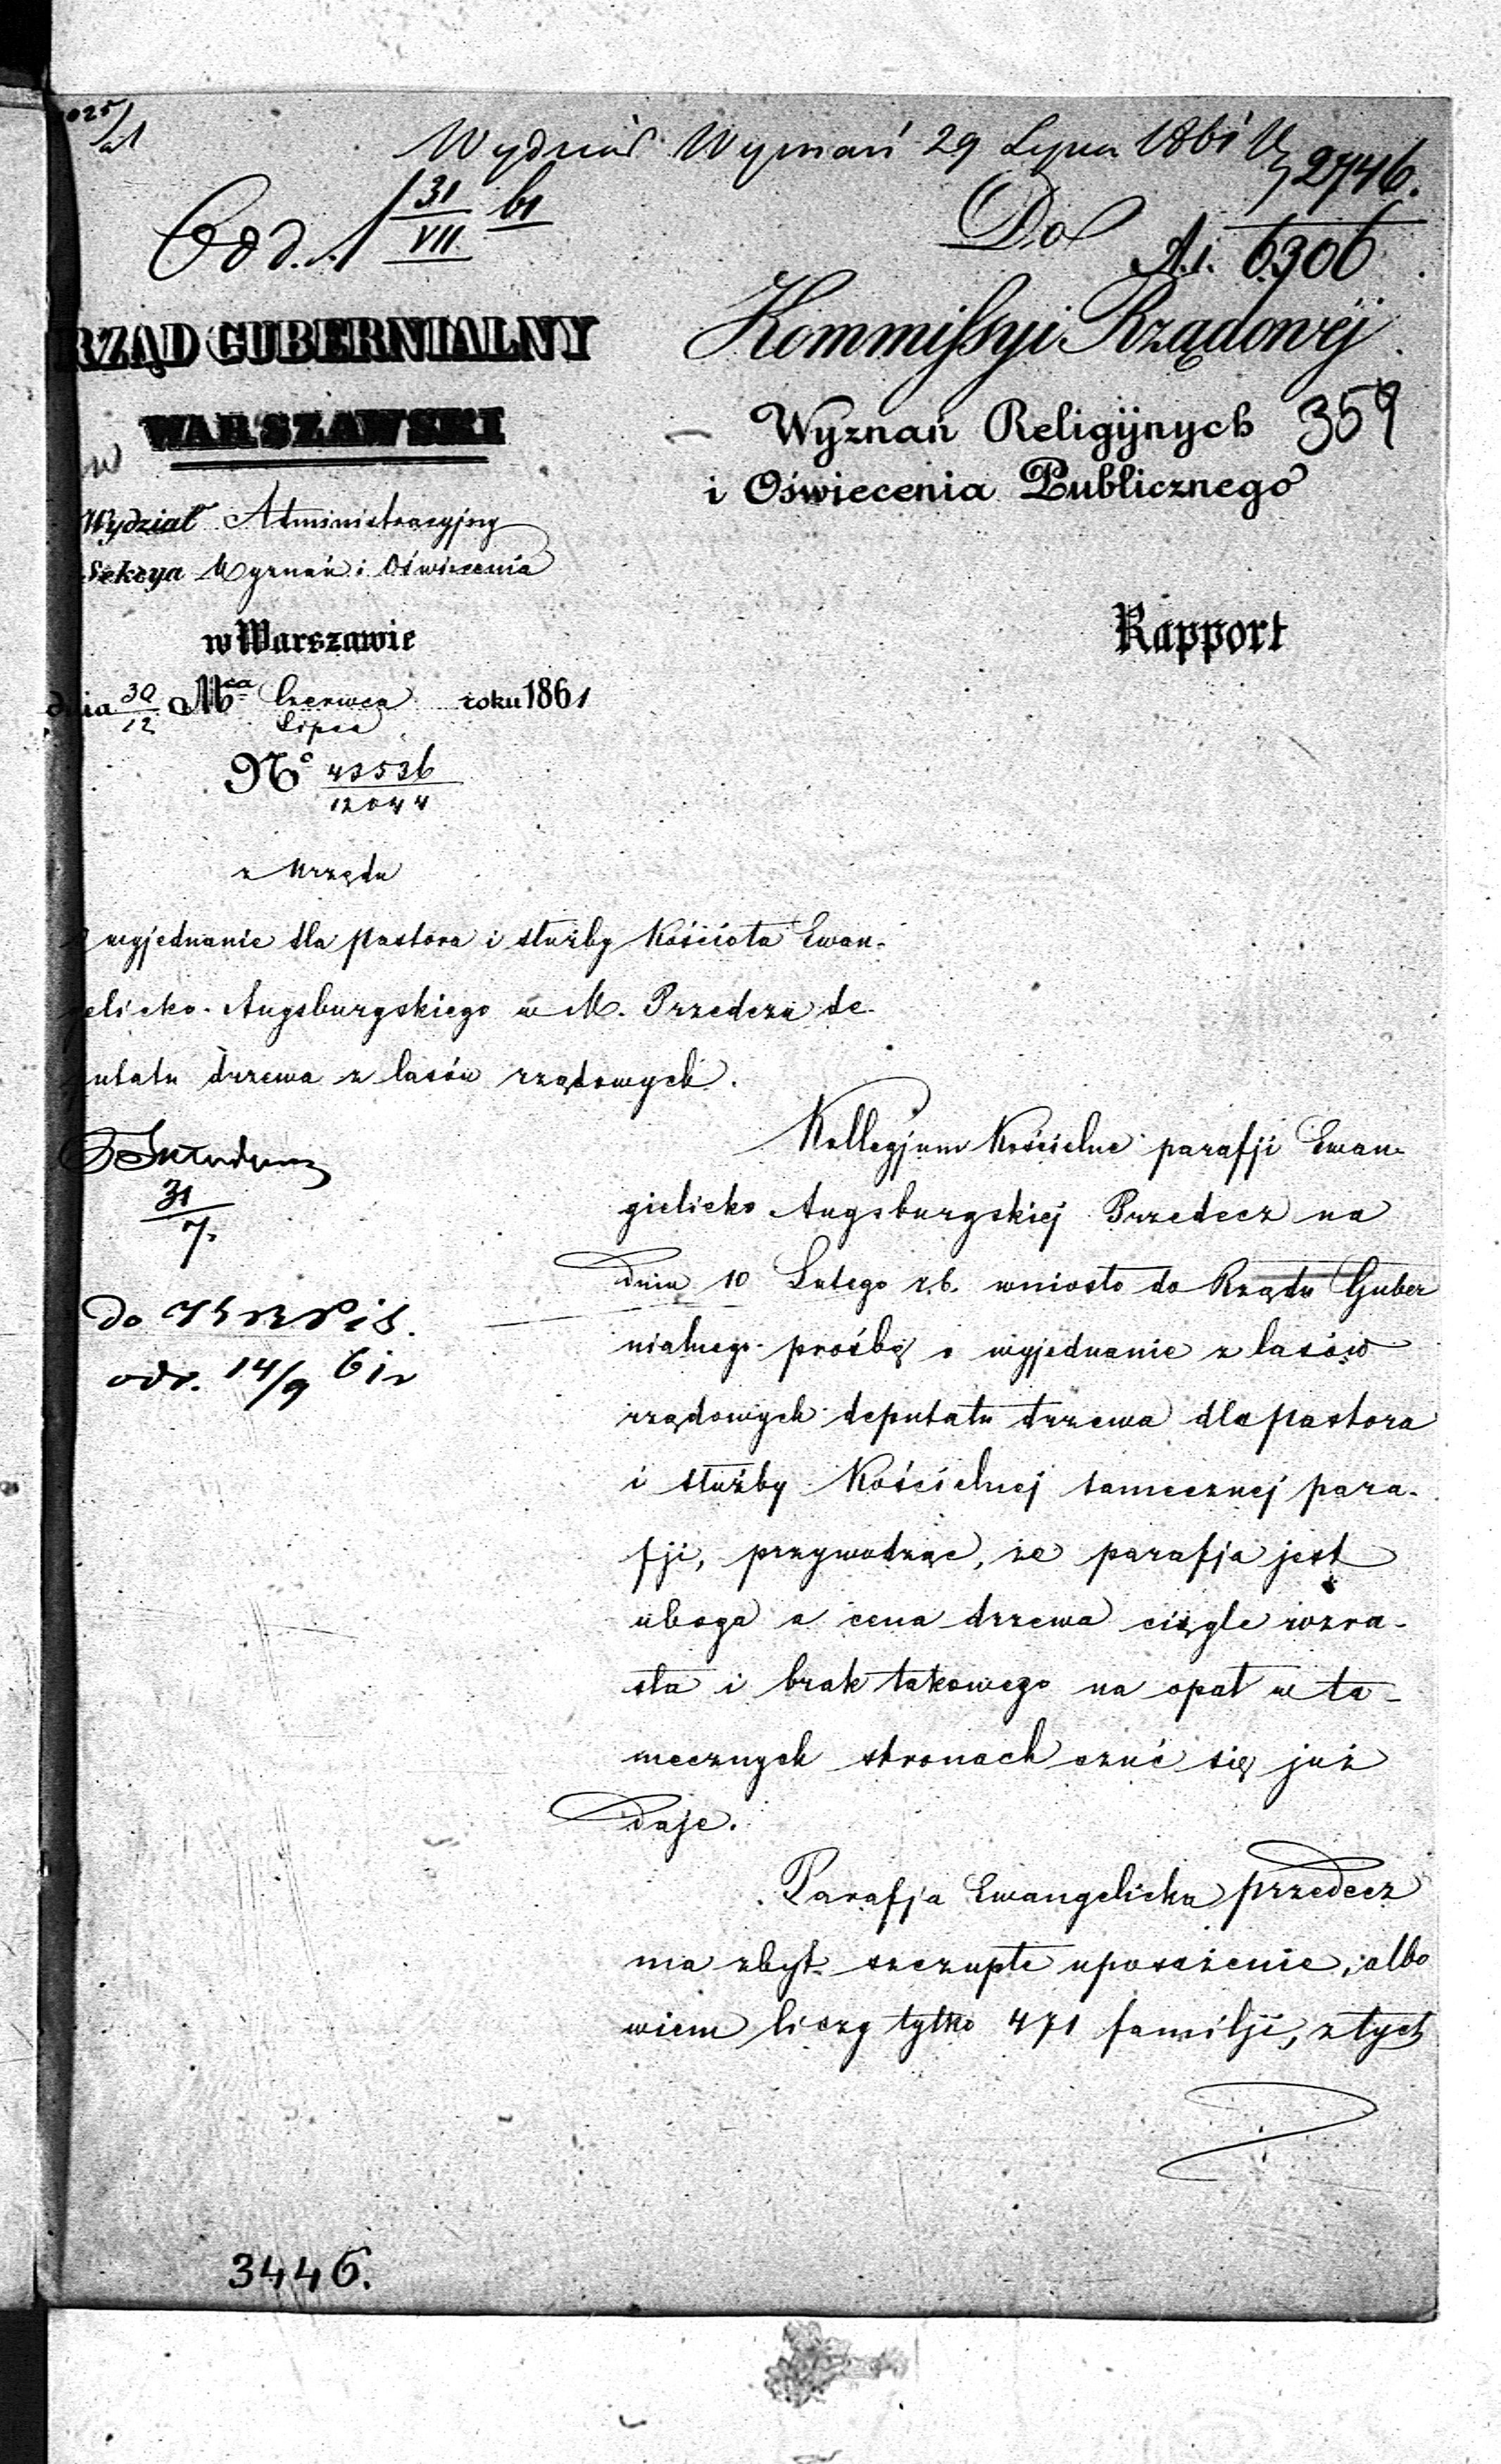 Wydział Wyznań 29 Lipca 1861 2746.
31 61
VII
Do
6306
RZĄD GUBERNIALNY
WARSZAWSKI
Wydział Administracyjny
Sekcya Wyznań i Oświecenia
w Warszawie
dnia 30/12 Mca Czerwca/Lipca roku 1861
No 43536/12044
z Urzędu
wyjednanie dla pastora i służby Kościoła Ewan-
elicko-Augsburgskiego w M. Przedczu de-
utatu drzewa z lasów rządowych.
31
7.
do
odr. 14/9 61 r
Kommissyi Rządowéj
Wyznań Religijnych 359
i Oświecenia Publicznego
Rapport
Kollegjum Kościelne parafji Ewan-
gielicko Augsburgskiej Przedecz na
dniu 10 Lutego r.b. wniosło do Rządu Guber
nialnego prośbę o wyjednanie z lasów
rządowych deputatu drzewa dla pastora
i służby Kościelnej tamecznej para-
fji, przywodząc, że parafja jest
uboga a cena drzewa ciągle wzra-
sta i brak takowego na opał w ta-
mecznych stronach czuć się już
daje.
Parafja Ewangelicka Przedecz
ma zbyt szczupłe uposażenie, albo
wiem liczy tylko 471 familji, z tych
3446.